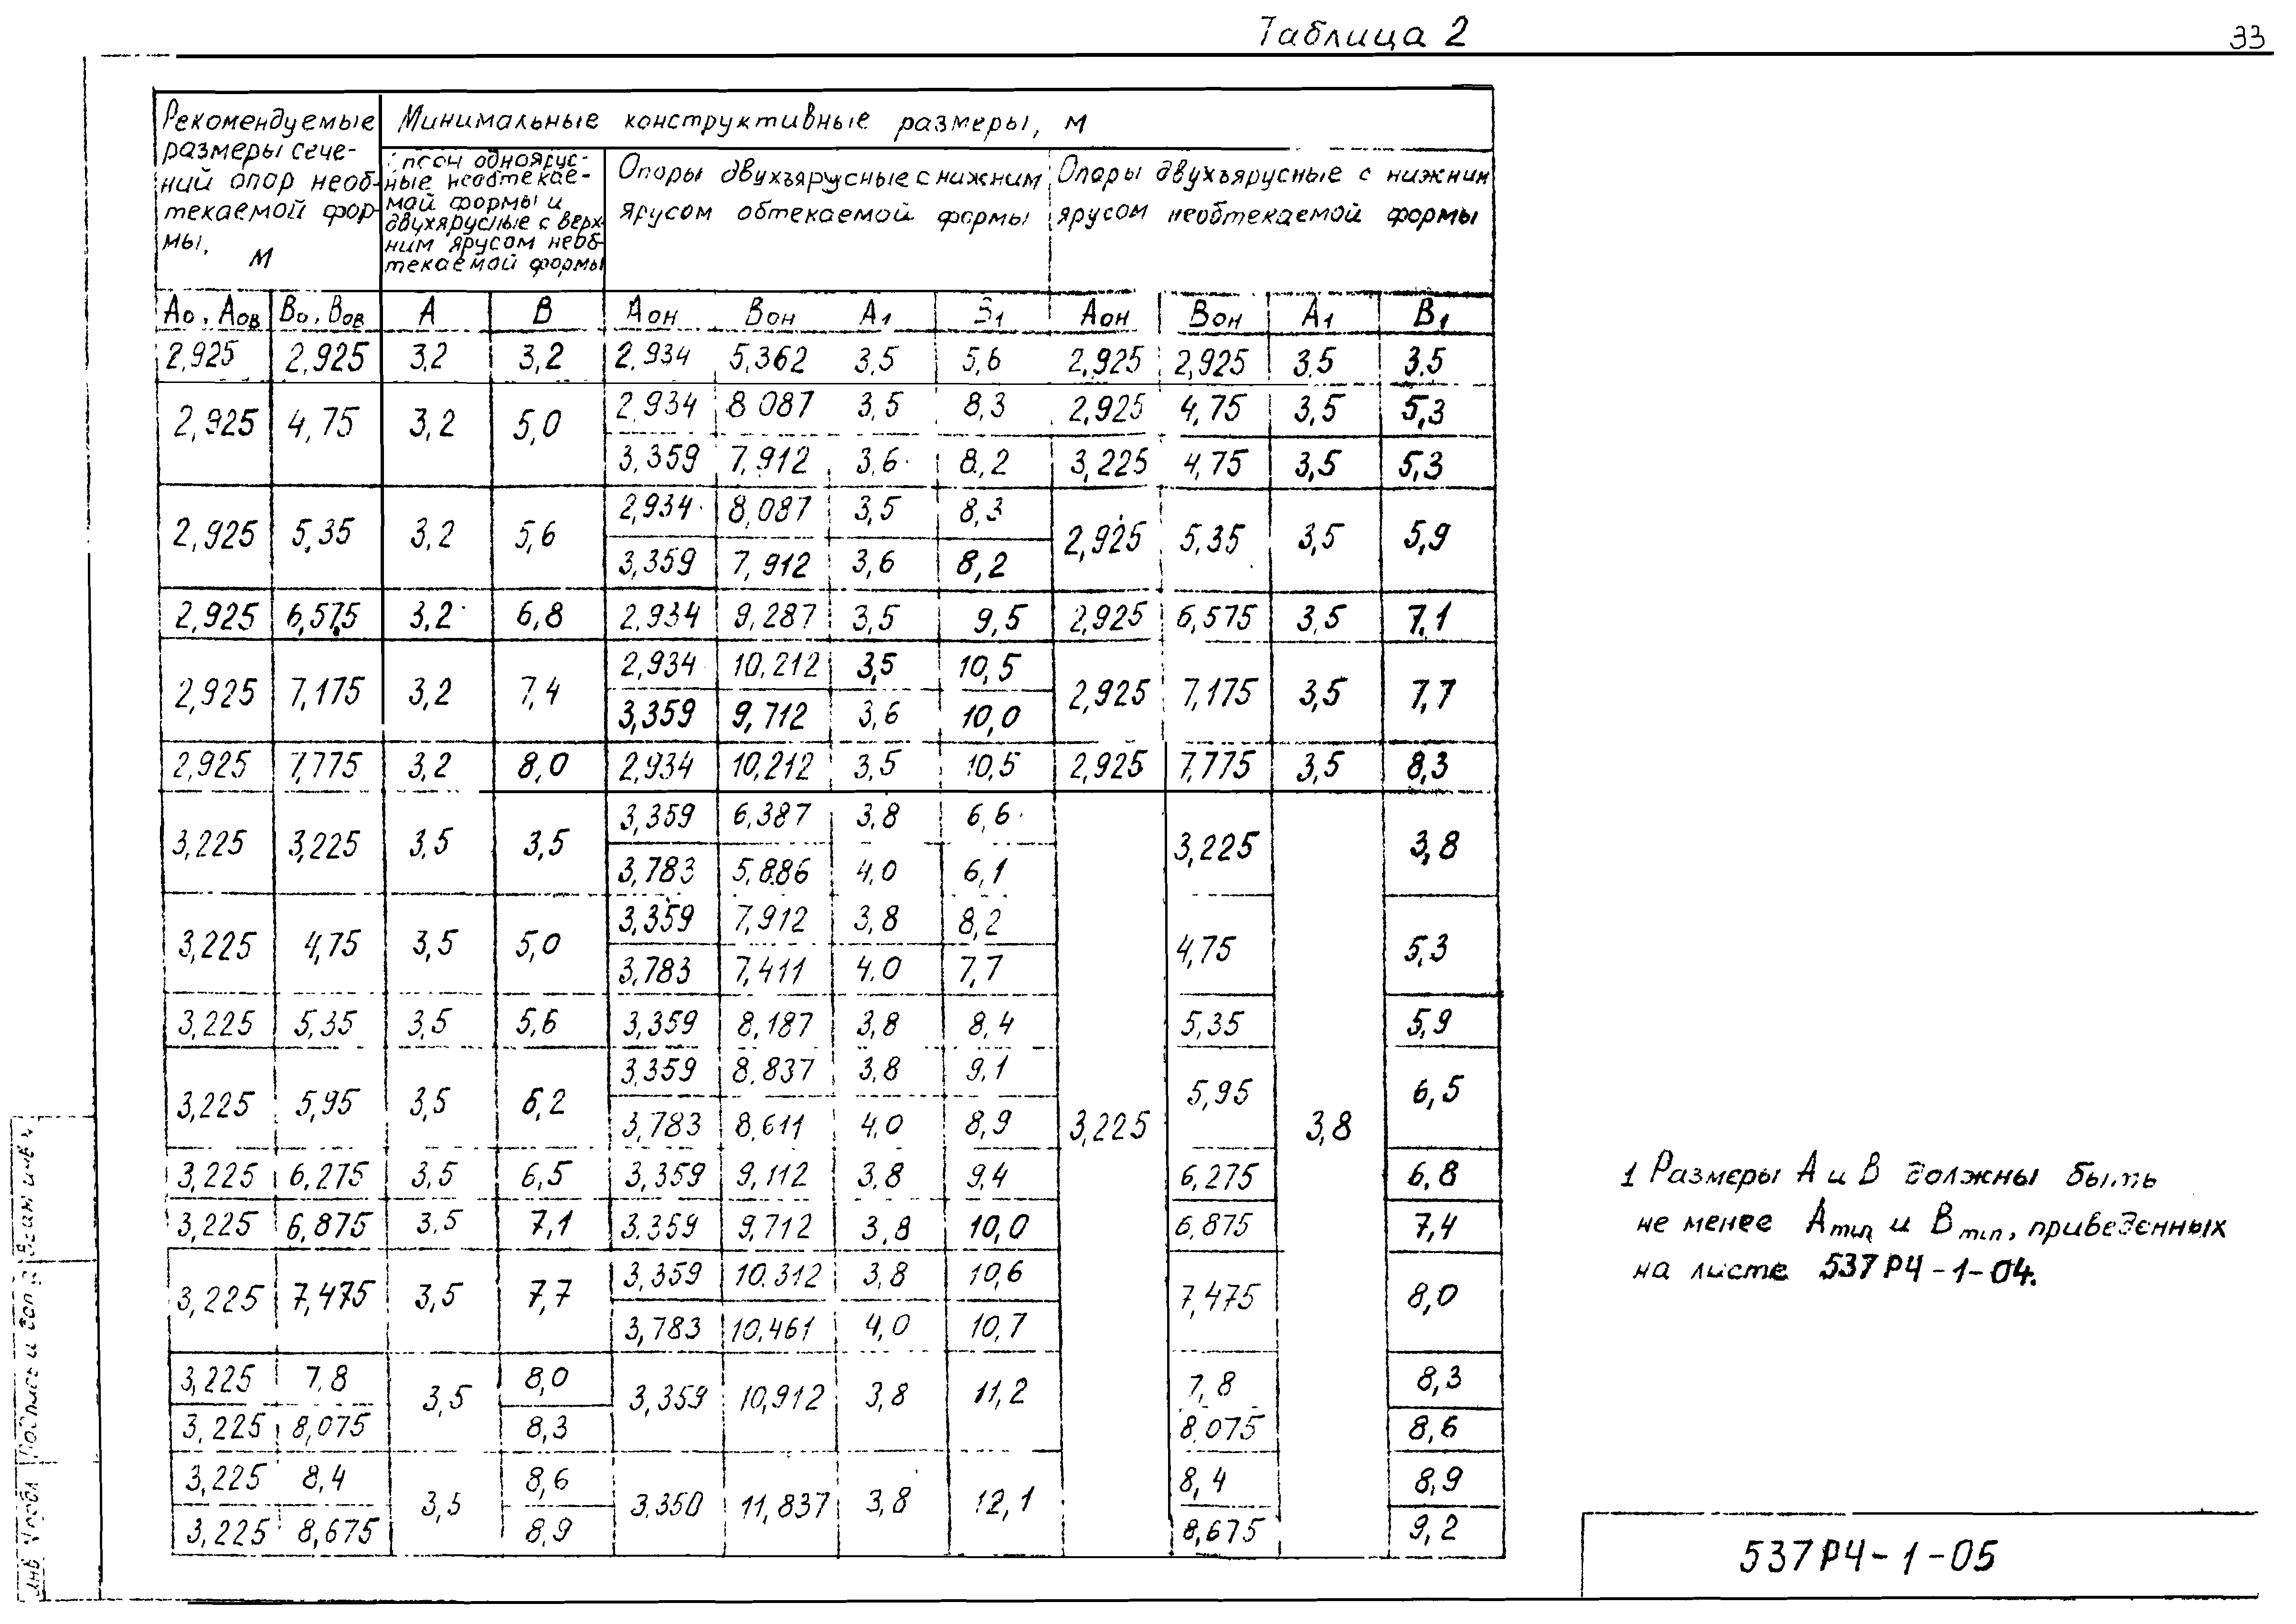 Таблица 2
33
Рекомендуемые размеры сечений опор необтекаемой формы, м
Минимальные конструктивные размеры, м
одноярусные необтекаемой формы и двухярусные с верхним ярусом необтекаемой формы
Опоры двухъярусные с нижним ярусом обтекаемой формы
Опоры двухъярусные с нижним ярусом необтекаемой формы
Ао, Аов Во, Вов А В Аон Вон А1 В1 Аон Вон А1 В1
2,925 2,925 3,2 3,2 2,934 5,362 3,5 5,6 2,925 2,925 3,5 3,5
2,925 4,75 3,2 5,0 2,934 8 087 3,5 8,3 2,925 4,75 3,5 5,3
3,359 7,912 3,6 8,2 3,225 4,75 3,5 5,3
2,925 5,35 3,2 5,6 2,934 8,087 3,5 8,3 2,925 5,35 3,5 5,9
3,359 7,912 3,6 8,2
2,925 6,575 3,2 6,8 2,934 9,287 3,5 9,5 2,925 6,575 3,5 7,1
2,925 7,175 3,2 7,4 2,934 10,212 3,5 10,5 2,925 7,175 3,5 7,7
3,359 9,712 3,6 10,0
2,925 7,775 3,2 8,0 2,934 10,212 3,5 10,5 2,925 7,775 3,5 8,3
3,225 3,225 3,5 3,5 3,359 6,387 3,8 6,6 3,225 3,8
3,783 5,886 4,0 6,1
3,225 4,75 3,5 5,0 3,359 7,912 3,8 8,2 4,75 5,3
3,783 7,411 4,0 7,7
3,225 5,35 3,5 5,6 3,359 8,187 3,8 8,4 5,35 5,9
3,225 5,95 3,5 6,2 3,359 8,837 3,8 9,1 5,95 6,5
3,783 8,611 4,0 8,9 3,225 3,8
3,225 6,275 3,5 6,5 3,359 9,112 3,8 9,4 6,275 6,8
3,225 6,875 3,5 7,1 3,359 9,712 3,8 10,0 6,875 7,4
3,225 7,475 3,5 7,7 3,359 10,312 3,8 10,6 7,475 8,0
3,783 10,461 4,0 10,7
3,225 7,8 3,5 8,0 3,359 10,912 3,8 11,2 7,8 8,3
3,225 8,075 8,3 8,075 8,6
3,225 8,4 3,5 8,6 3,350 11,837 3,8 12,1 8,4 8,9
3,225 8,675 8,9 8,675 9,2
1 Размеры А и В должны быть
не менее Аmin и Вmin, приведенных
на листе 537РЧ-1-04.
537РЧ-1-05